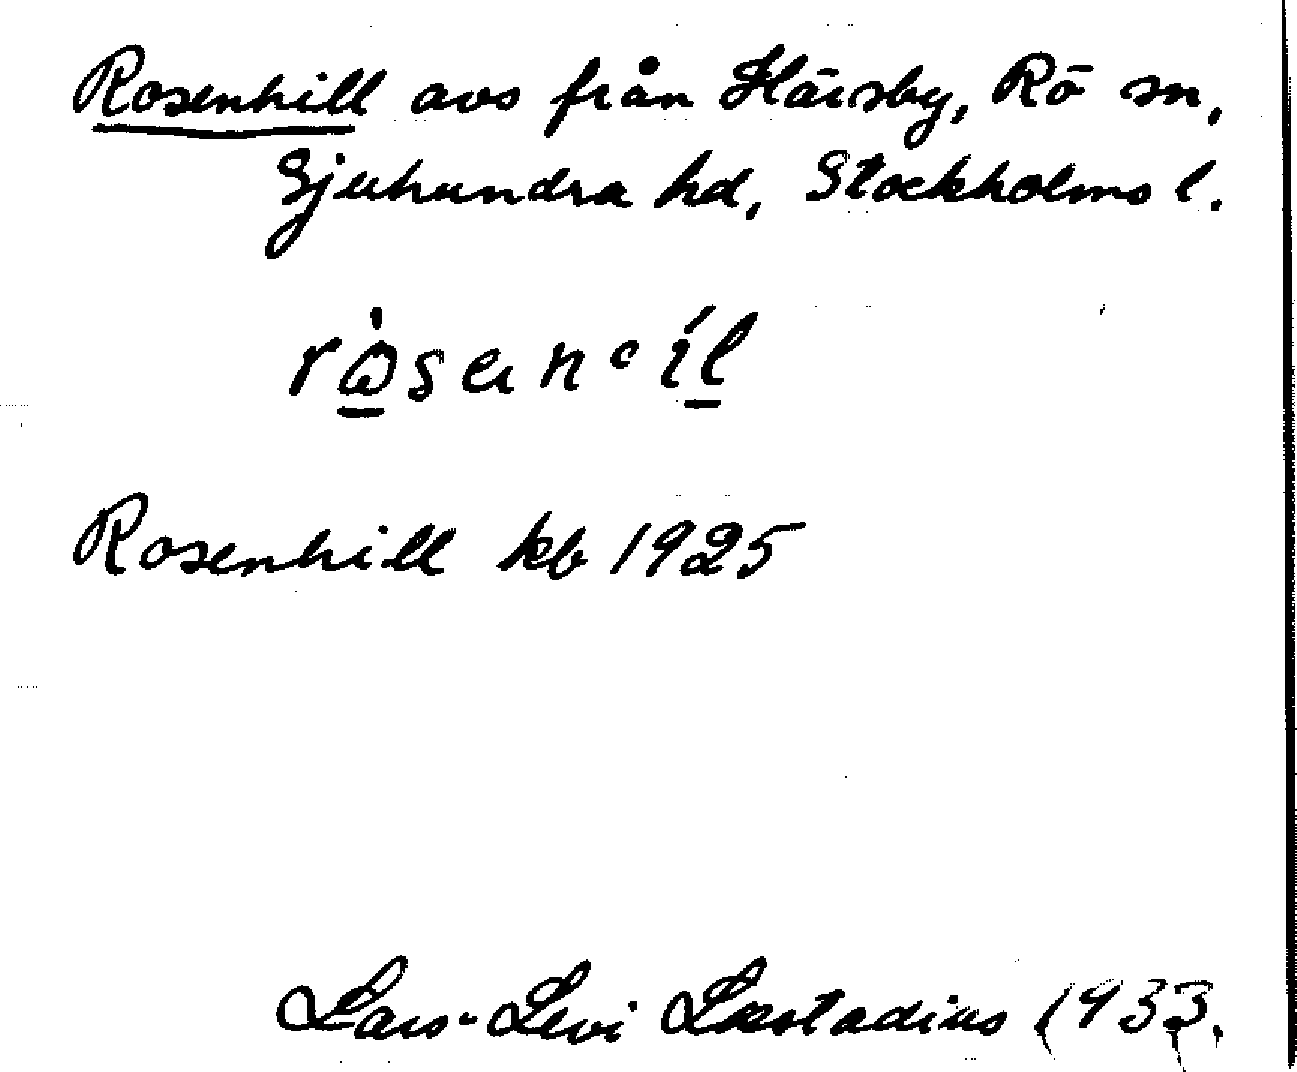 Rosenhill avs från Härsby, Rö sn,
Sjuhundra hd, Stockholms l.
Rosenhill kb 1925
Lars-Levi Læstadius 1933.